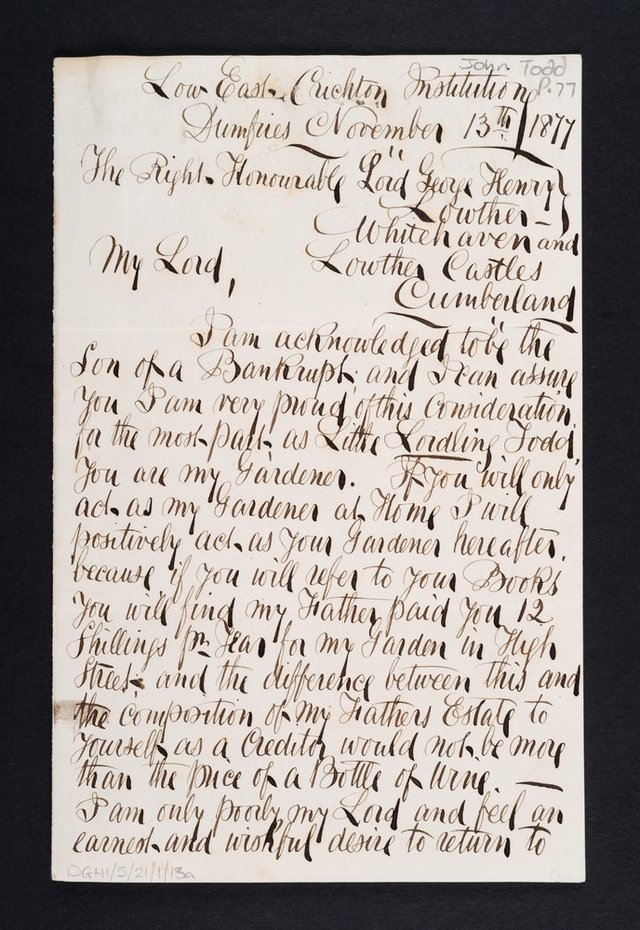 John Todd
P.77
Low East Crichton Institution
Dumfries November 13th 1877
The Right Honourable Lord George Henry
Lowther
Whitehaven and
Lowther Castles
Cumberland
My Lord,
I am acknowledged to be the
Son of a Bankrupt, and I can assure
you I am very proud of this consideration
for the most part as Little Lordling Todd,
You are my Gardener. If you will only
act as my Gardener at Home I will
positively act as your Gardener hereafter.
because if you will refer to your Books
you will find my Father paid you 12
Shillings pr. Year for my Garden in High
Street and the difference between this and
the composition of my Fathers Estate to
yourself as a Creditor would not be more
than the price of a Bottle of Urine. —
I am only poorly my Lord and feel an
earnest and wishful desire to return to
DGH1/5/21/1/13a